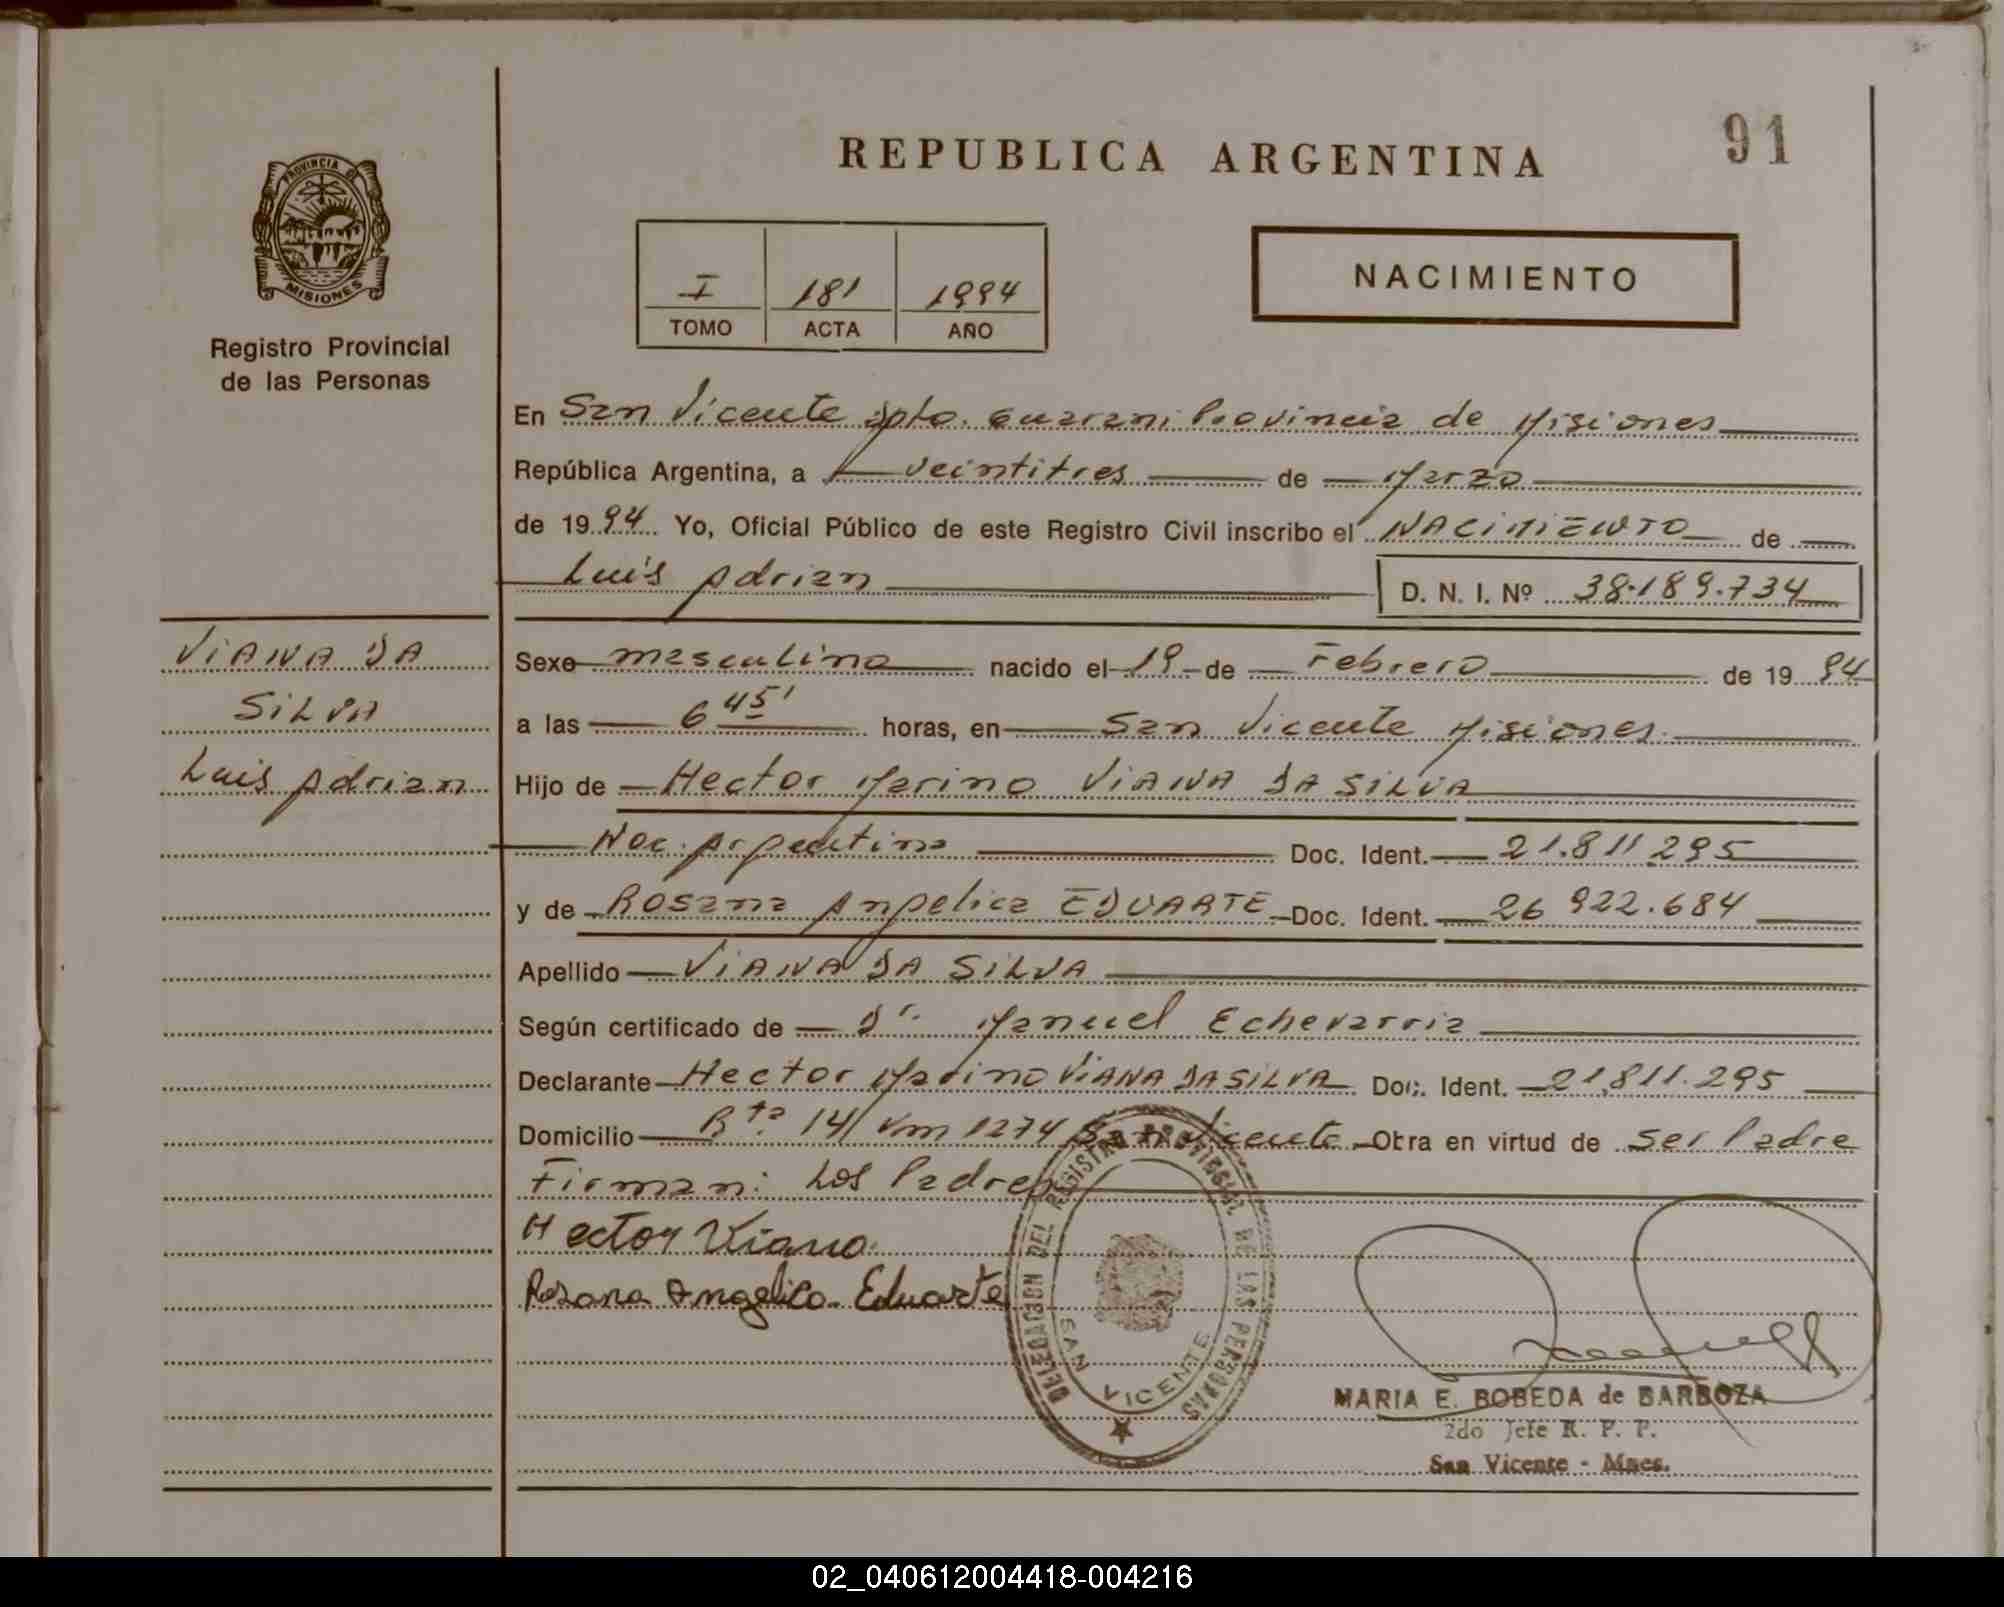 91
REPUBLICA ARGENTINA
PROVINCIA DE
MISIONES
Registro Provincial
de las Personas
I 181 1994
TOMO ACTA AÑO
NACIMIENTO
En San Vicente Dpto. Guarani Provincia de Misiones
República Argentina, a veintitres de Marzo
de 1994 Yo, Oficial Público de este Registro Civil inscribo el NACIMIENTO de
Luis Adrian D. N. I. Nº 38.189.734
VIANA DA
SILVA
Luis Adrian
Sexo masculino nacido el 19 de Febrero de 1994
a las 6 45' horas, en San Vicente Misiones
Hijo de Hector Marino VIANA DA SILVA
Nac. Argentina Doc. Ident. 21.811.295
y de Rosana Angelica EDUARTE Doc. Ident. 26.922.684
Apellido VIANA DA SILVA
Según certificado de Dr. Manuel Echevarria
Declarante Hector Marino VIANA DA SILVA Doc. Ident. 21.811.295
Domicilio Rta. 14 Km 1274 San Vicente Obra en virtud de ser Padre
Firman: Los Padres
Hector Viana
Rosana Angelica Eduarte
DELEGACION DEL REGISTRO PROVINCIAL DE LAS PERSONAS
SAN VICENTE
MARIA E. BOBEDA de BARBOZA
2do Jefe R. P. P.
San Vicente - Mnes.
02_040612004418-004216